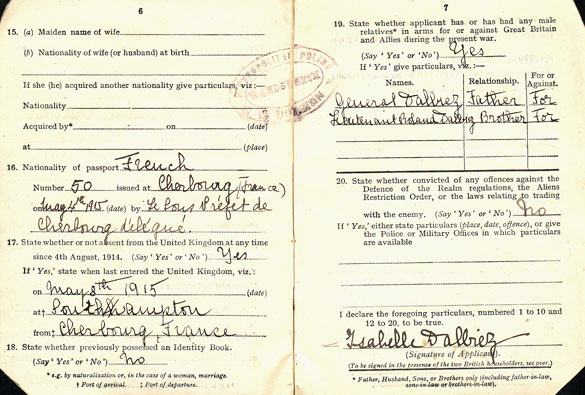 6
15. (a) Maiden name of wife
(b) Nationality of wife (or husband) at birth
If she (he) acquired another nationality give particulars, viz:—
Nationality
Acquired by* on (date)
at (place)
METROPOLITAN POLICE
WANDSWORTH
DIVISION
16. Nationality of passport French
Number 50 issued at Cherbourg (France)
on May 4th 1915 (date) by Le Sous Préfet de
Cherbourg délégué.
17. State whether or not absent from the United Kingdom at any time
since 4th August, 1914. (Say 'Yes' or 'No') Yes
If 'Yes,' state when last entered the United Kingdom, viz.:
on May 8th 1915 (date)
at† Southampton
from‡ Cherbourg, France
18. State whether previously possessed an Identity Book.
(Say 'Yes' or 'No') No
* e.g. by naturalisation or, in the case of a woman, marriage.
† Port of arrival. ‡ Port of departure.
7
19. State whether applicant has or has had any male
relatives* in arms for or against Great Britain
and Allies during the present war.
(Say 'Yes' or 'No') Yes
If 'Yes' give particulars, viz:—
Names. Relationship. For or Against.
General Dalbiez Father For
Lieutenant Roland Dalbiez Brother For
20. State whether convicted of any offences against the
Defence of the Realm regulations, the Aliens
Restriction Order, or the laws relating to trading
with the enemy. (Say 'Yes' or 'No') No
If 'Yes,' either state particulars (place, date, offence), or give
the Police or Military Offices in which particulars
are available
I declare the foregoing particulars, numbered 1 to 10 and
12 to 20, to be true.
Isabelle Dalbiez
(Signature of Applicant).
(To be signed in the presence of the two British householders, see over.)
* Father, Husband, Sons, or Brothers only (including father-in-law,
sons-in-law or brothers-in-law).